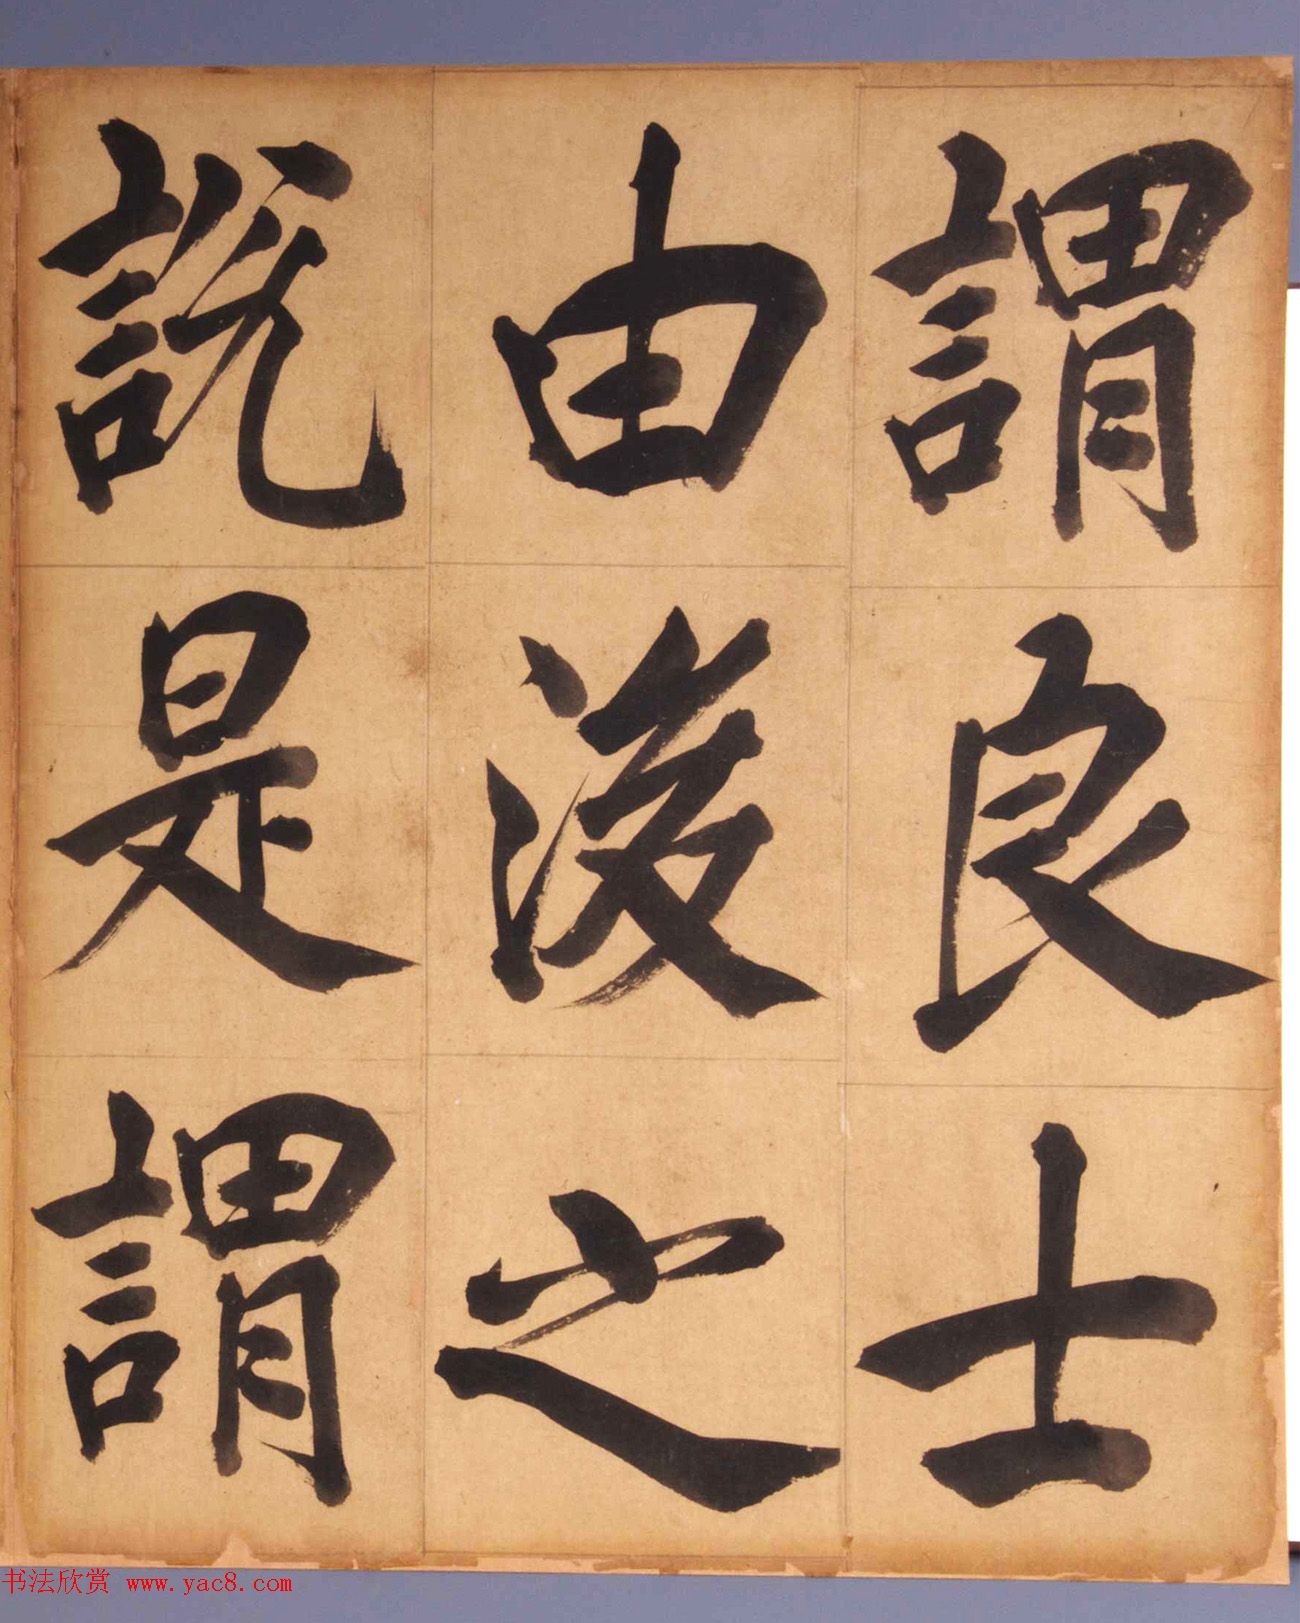 謂良士
由後之
説是謂
书法欣赏 www.yac8.com